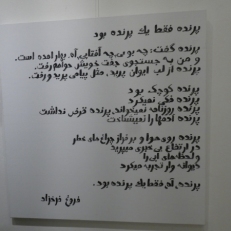 پرنده فقط یک پرنده بود
پرنده گفت: چه بویی، چه آفتابی، آه، بهار آمده است.
و من به جستجوی جفت خویش خواهم رفت.
پرنده از لب ایوان پرید، مثل پیامی پرید و رفت.
پرنده کوچک بود
پرنده فکر نمیکرد
پرنده روزنامه نمیخواند، پرنده قرض نداشت
پرنده آدمها را نمیشناخت
پرنده روی هوا و بر فراز چراغ های خطر
در ارتفاع بی خبری میپرید
و لحظه های آبی را
دیوانه وار تجربه میکرد
پرنده، آه فقط یک پرنده بود.
فروغ فرخزاد